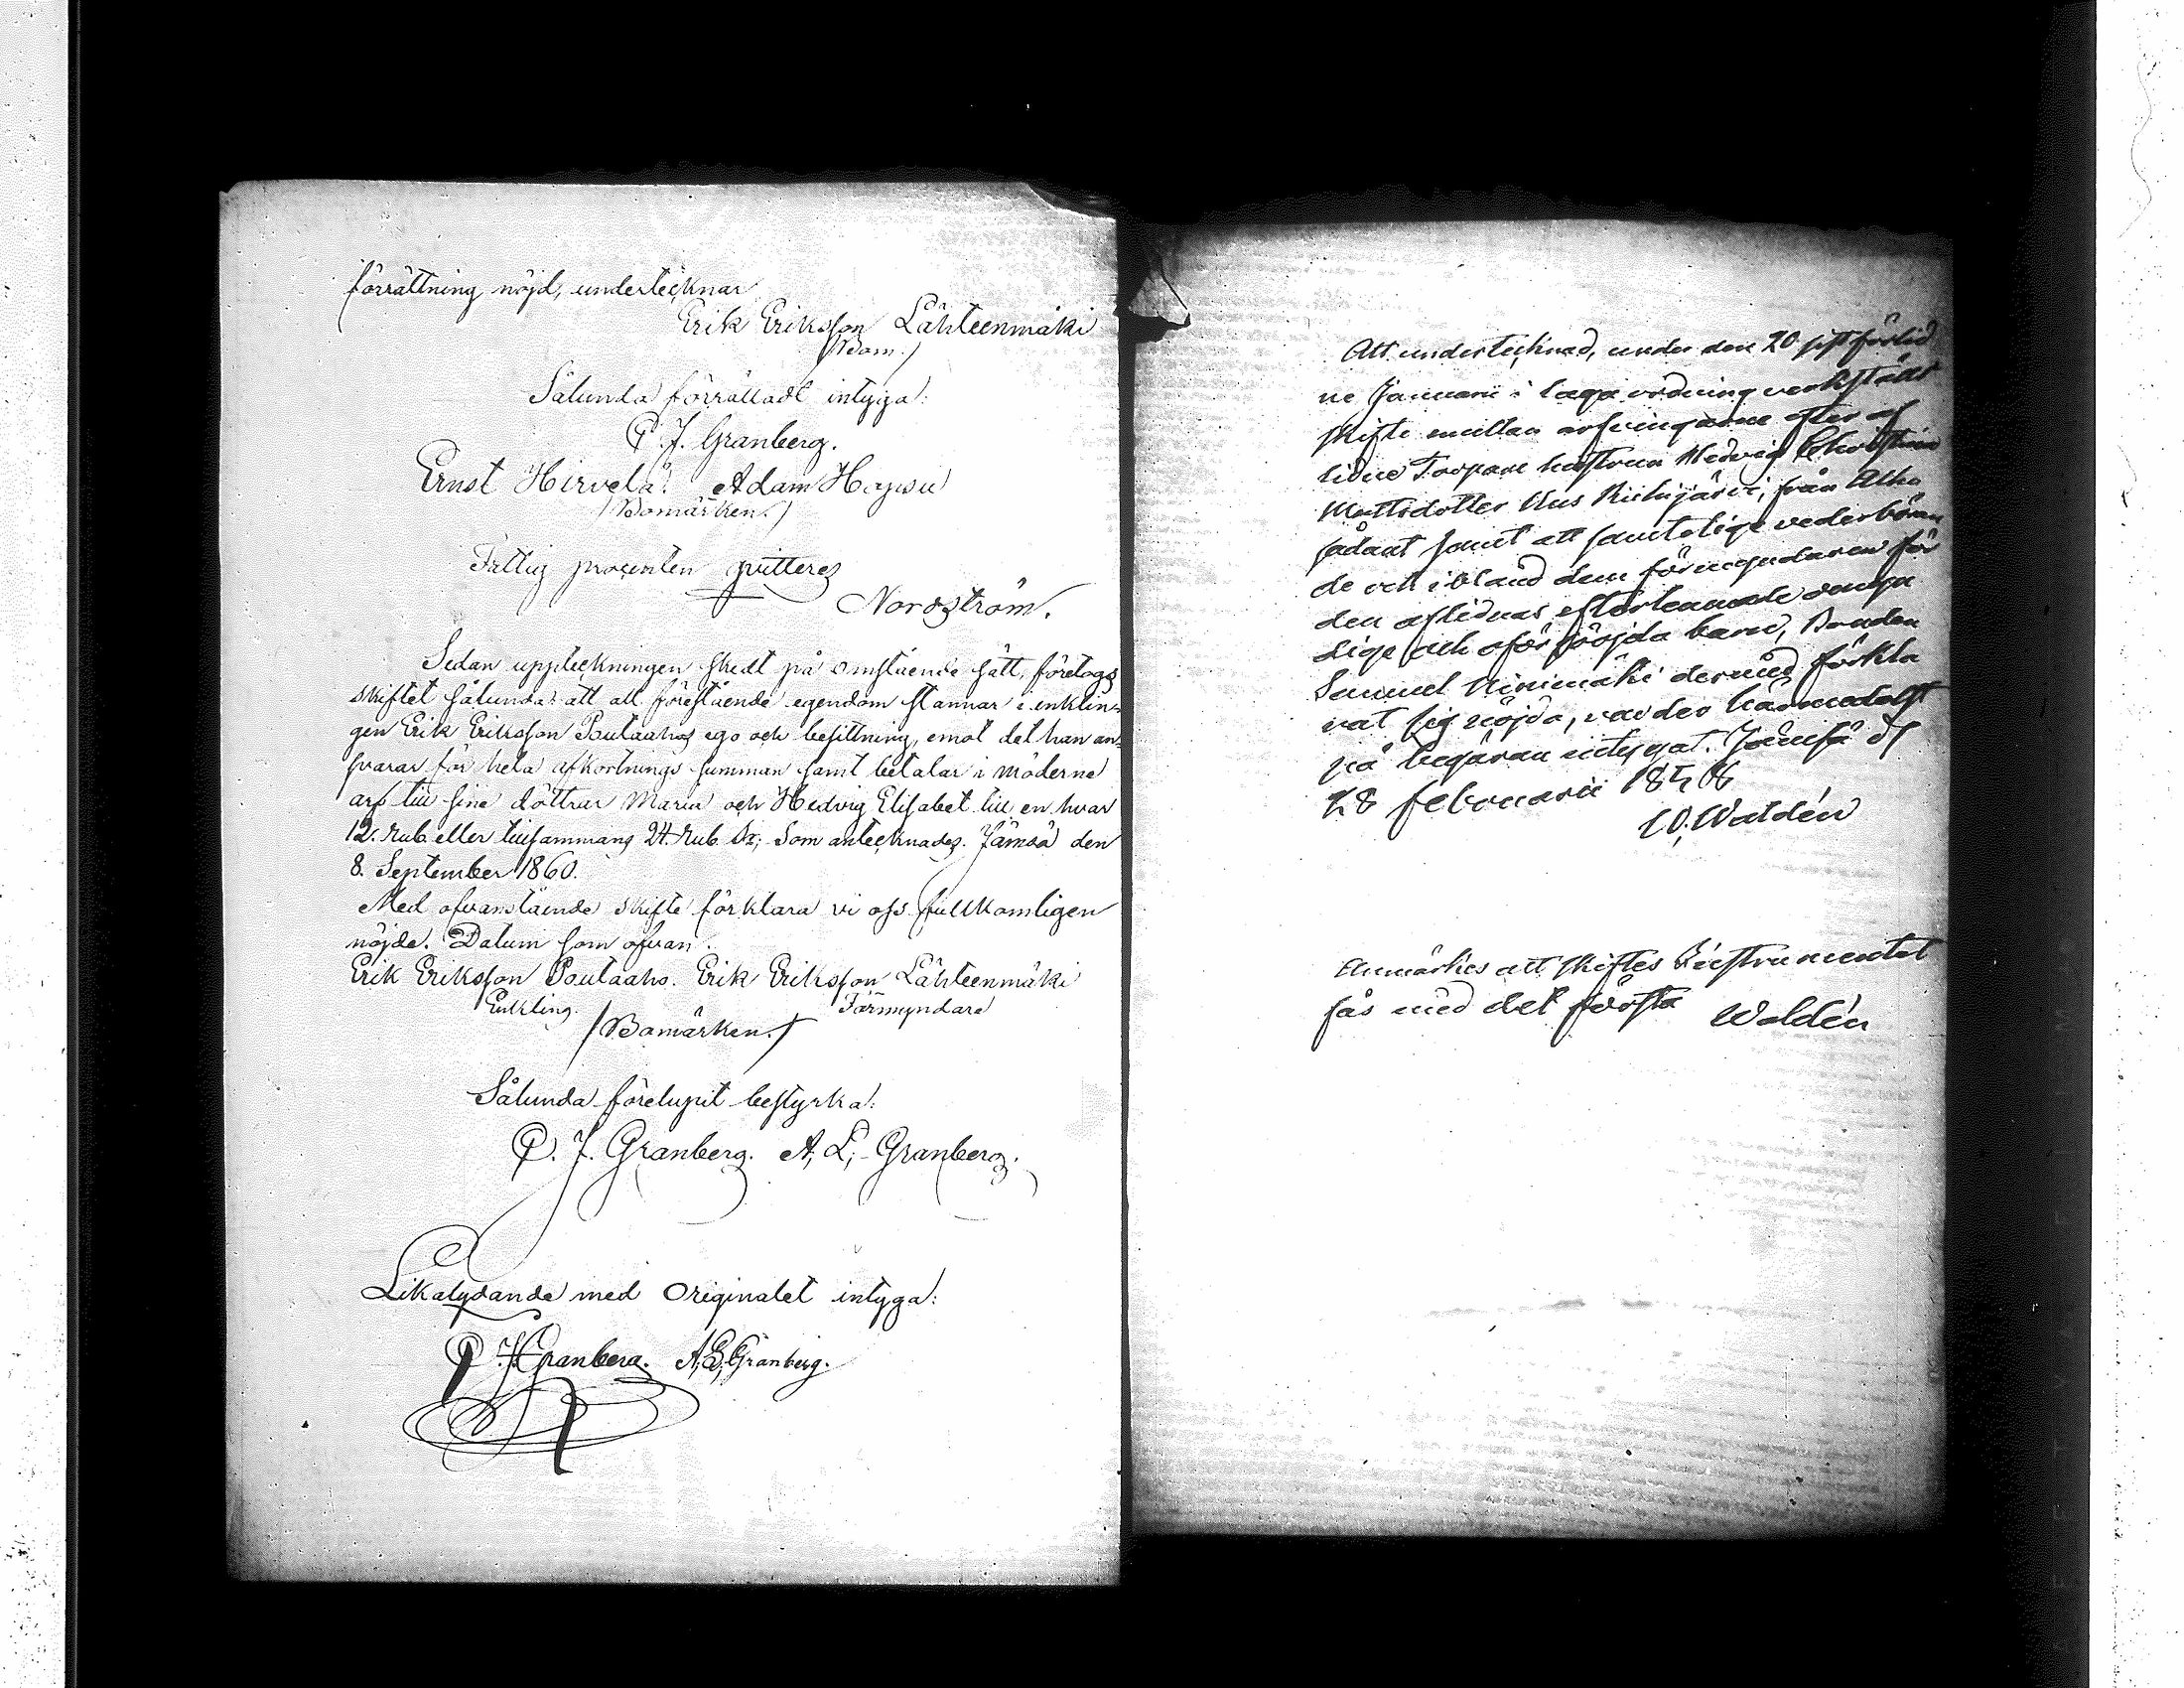 förrättning nöjd, undertecknar
Erik Eriksson Lähteenmäki
/Bom./
Sålunda förrättadt intyga:
P. J. Granberg.
Ernst Hirvelä. Adam Hajusu
/Bomärken./
Fattig procenten qvitteras
Nordström.
Sedan uppteckningen skedt på omstående sätt, företogs
skiftet sålunda: att all förestående egendom stannar i enklin-
gen Erik Eriksson Poutaahos ego och besittning, emot det han an-
svarar för hela afkortnings summan samt betalar i möderne
arf till sine döttrar Maria och Hedvig Elisabet till en hvar
12. Rub. eller tillsammans 24. Rub. Sr; Som antecknades. Jämsä den
8. September 1860.
Med ofvanstående skifte förklara vi oss fullkomligen
nöjde. Datum som ofvan.
Erik Eriksson Poutaaho. Erik Eriksson Lähteenmäki
Enkling. Förmyndare
/Bomärken./
Sålunda förelupit bestyrka:
P. J. Granberg. A. L. Granberg.
Likalydande med Originalet intyga:
P. J. Granberg. A. L. Granberg.
Att undertecknad, under den 20 sistförlid
ne Januarii i laga ordning verkställt
skifte mellan arfvingarne efter af
lidne Torpare hustrun Hedvig
Mattsdotter från Alho
sådant samt att samtelige vederböran
de och ibland dem förmyndaren för
den aflidnas efterlemnade omyn
dige och oförsörjda barn, Bonden
Samuel Niinimäki dermed förkla
rat sig nöjda, varder härmedelst
på begäran intygat. Jämsä d
28 februarii
Waldén
Anmärkes att skiftes Instrumentet
fås med det första Waldén